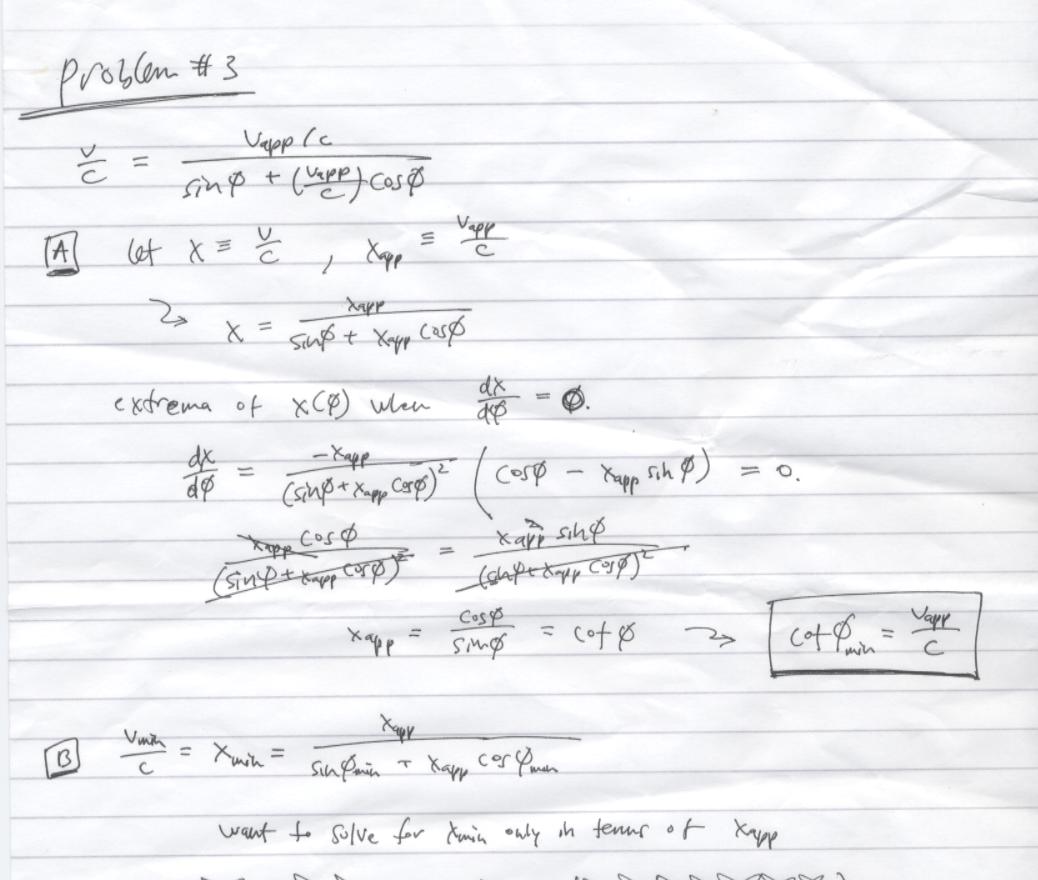 Problem #3
v/c = (v_app/c) / (sinφ + (v_app/c) cosφ)
[A] let x ≡ v/c , x_app ≡ v_app/c
⤳ x = x_app / (sinφ + x_app cosφ)
extrema of x(φ) when dx/dφ = 0.
dx/dφ = -x_app / (sinφ + x_app cosφ)² (cosφ - x_app sinφ) = 0.
x_app cosφ / (sinφ + x_app cosφ)² = x_app² sinφ / (sinφ + x_app cosφ)²
x_app = cosφ / sinφ = cotφ ⤳ cotφ_min = v_app/c
[B] v_min/c = x_min = x_app / (sinφ_min + x_app cosφ_min)
want to solve for x_min only in terms of x_app